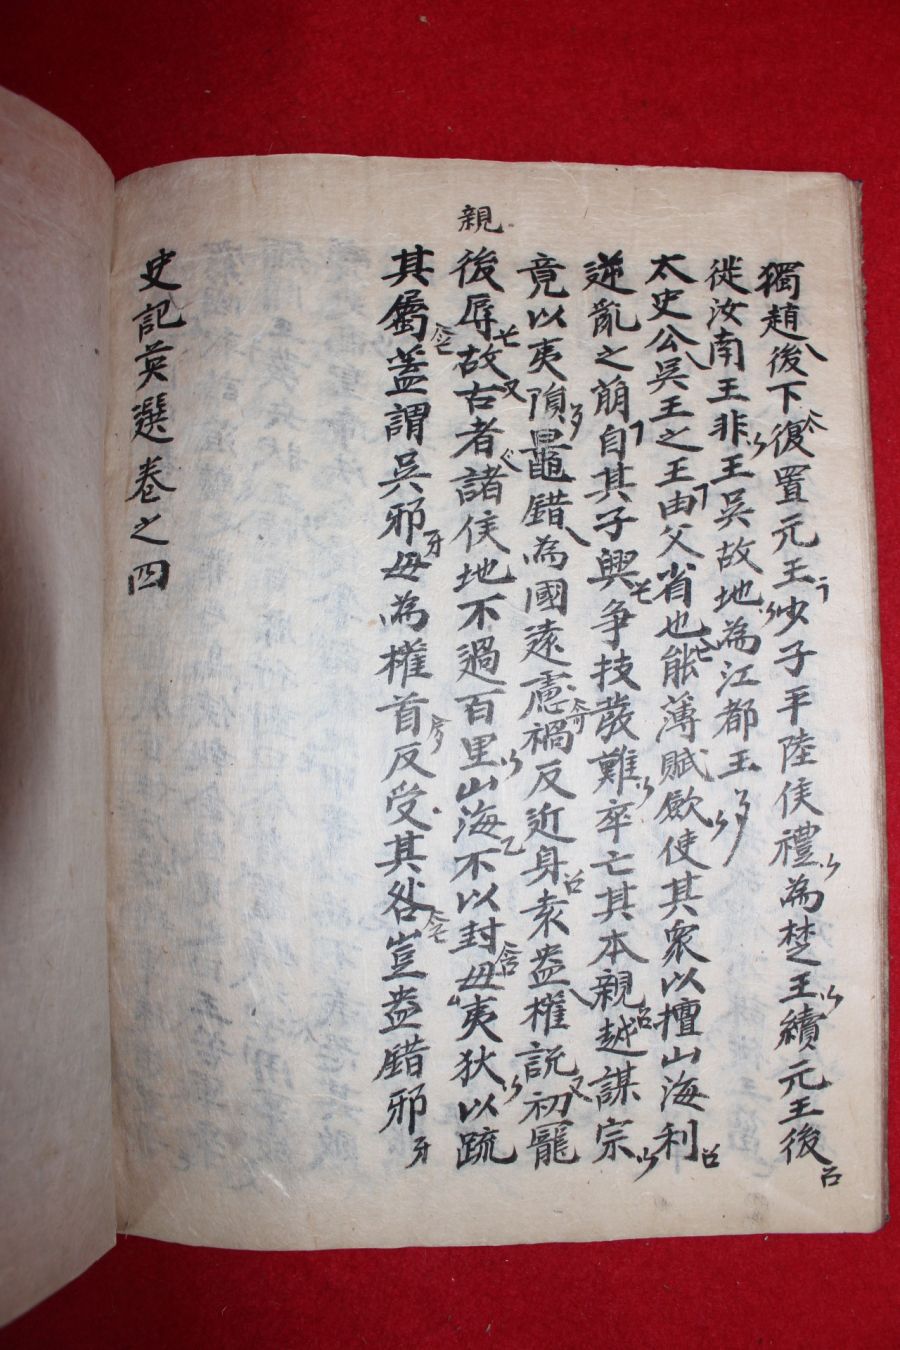 獨趙後下復置元王少子平陸侯禮為楚王續元王後
徙汝南王非王吳故地為江都王
太史公吳王之王由父省也能薄賦歛使其衆以擅山海利
逆亂之萠自其子興争技發難卒亡其本親越謀宗
竟以夷隕鼂錯為國遠慮禍反近身袁盎權説初寵
後辱故古者諸侯地不過百里山海不以封毋夷狄以疏
親
其屬蓋謂吳邪毋為權首反受其咎豈盎錯邪
史記英選卷之四